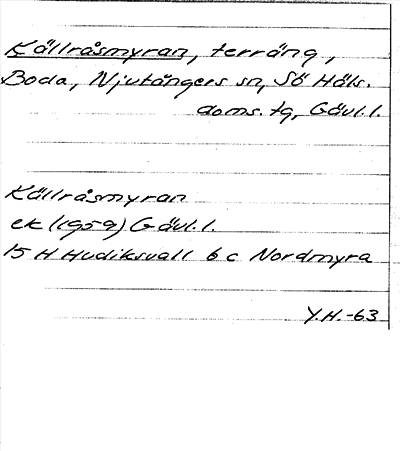 Källråsmyran, terräng,
Boda, Njutångers sn, Sö Häls.
doms. tg, Gävl.l.
Källråsmyran
ek (1959) Gävl.l.
15 H Hudiksvall 6 c Nordmyra
Y.H.-63